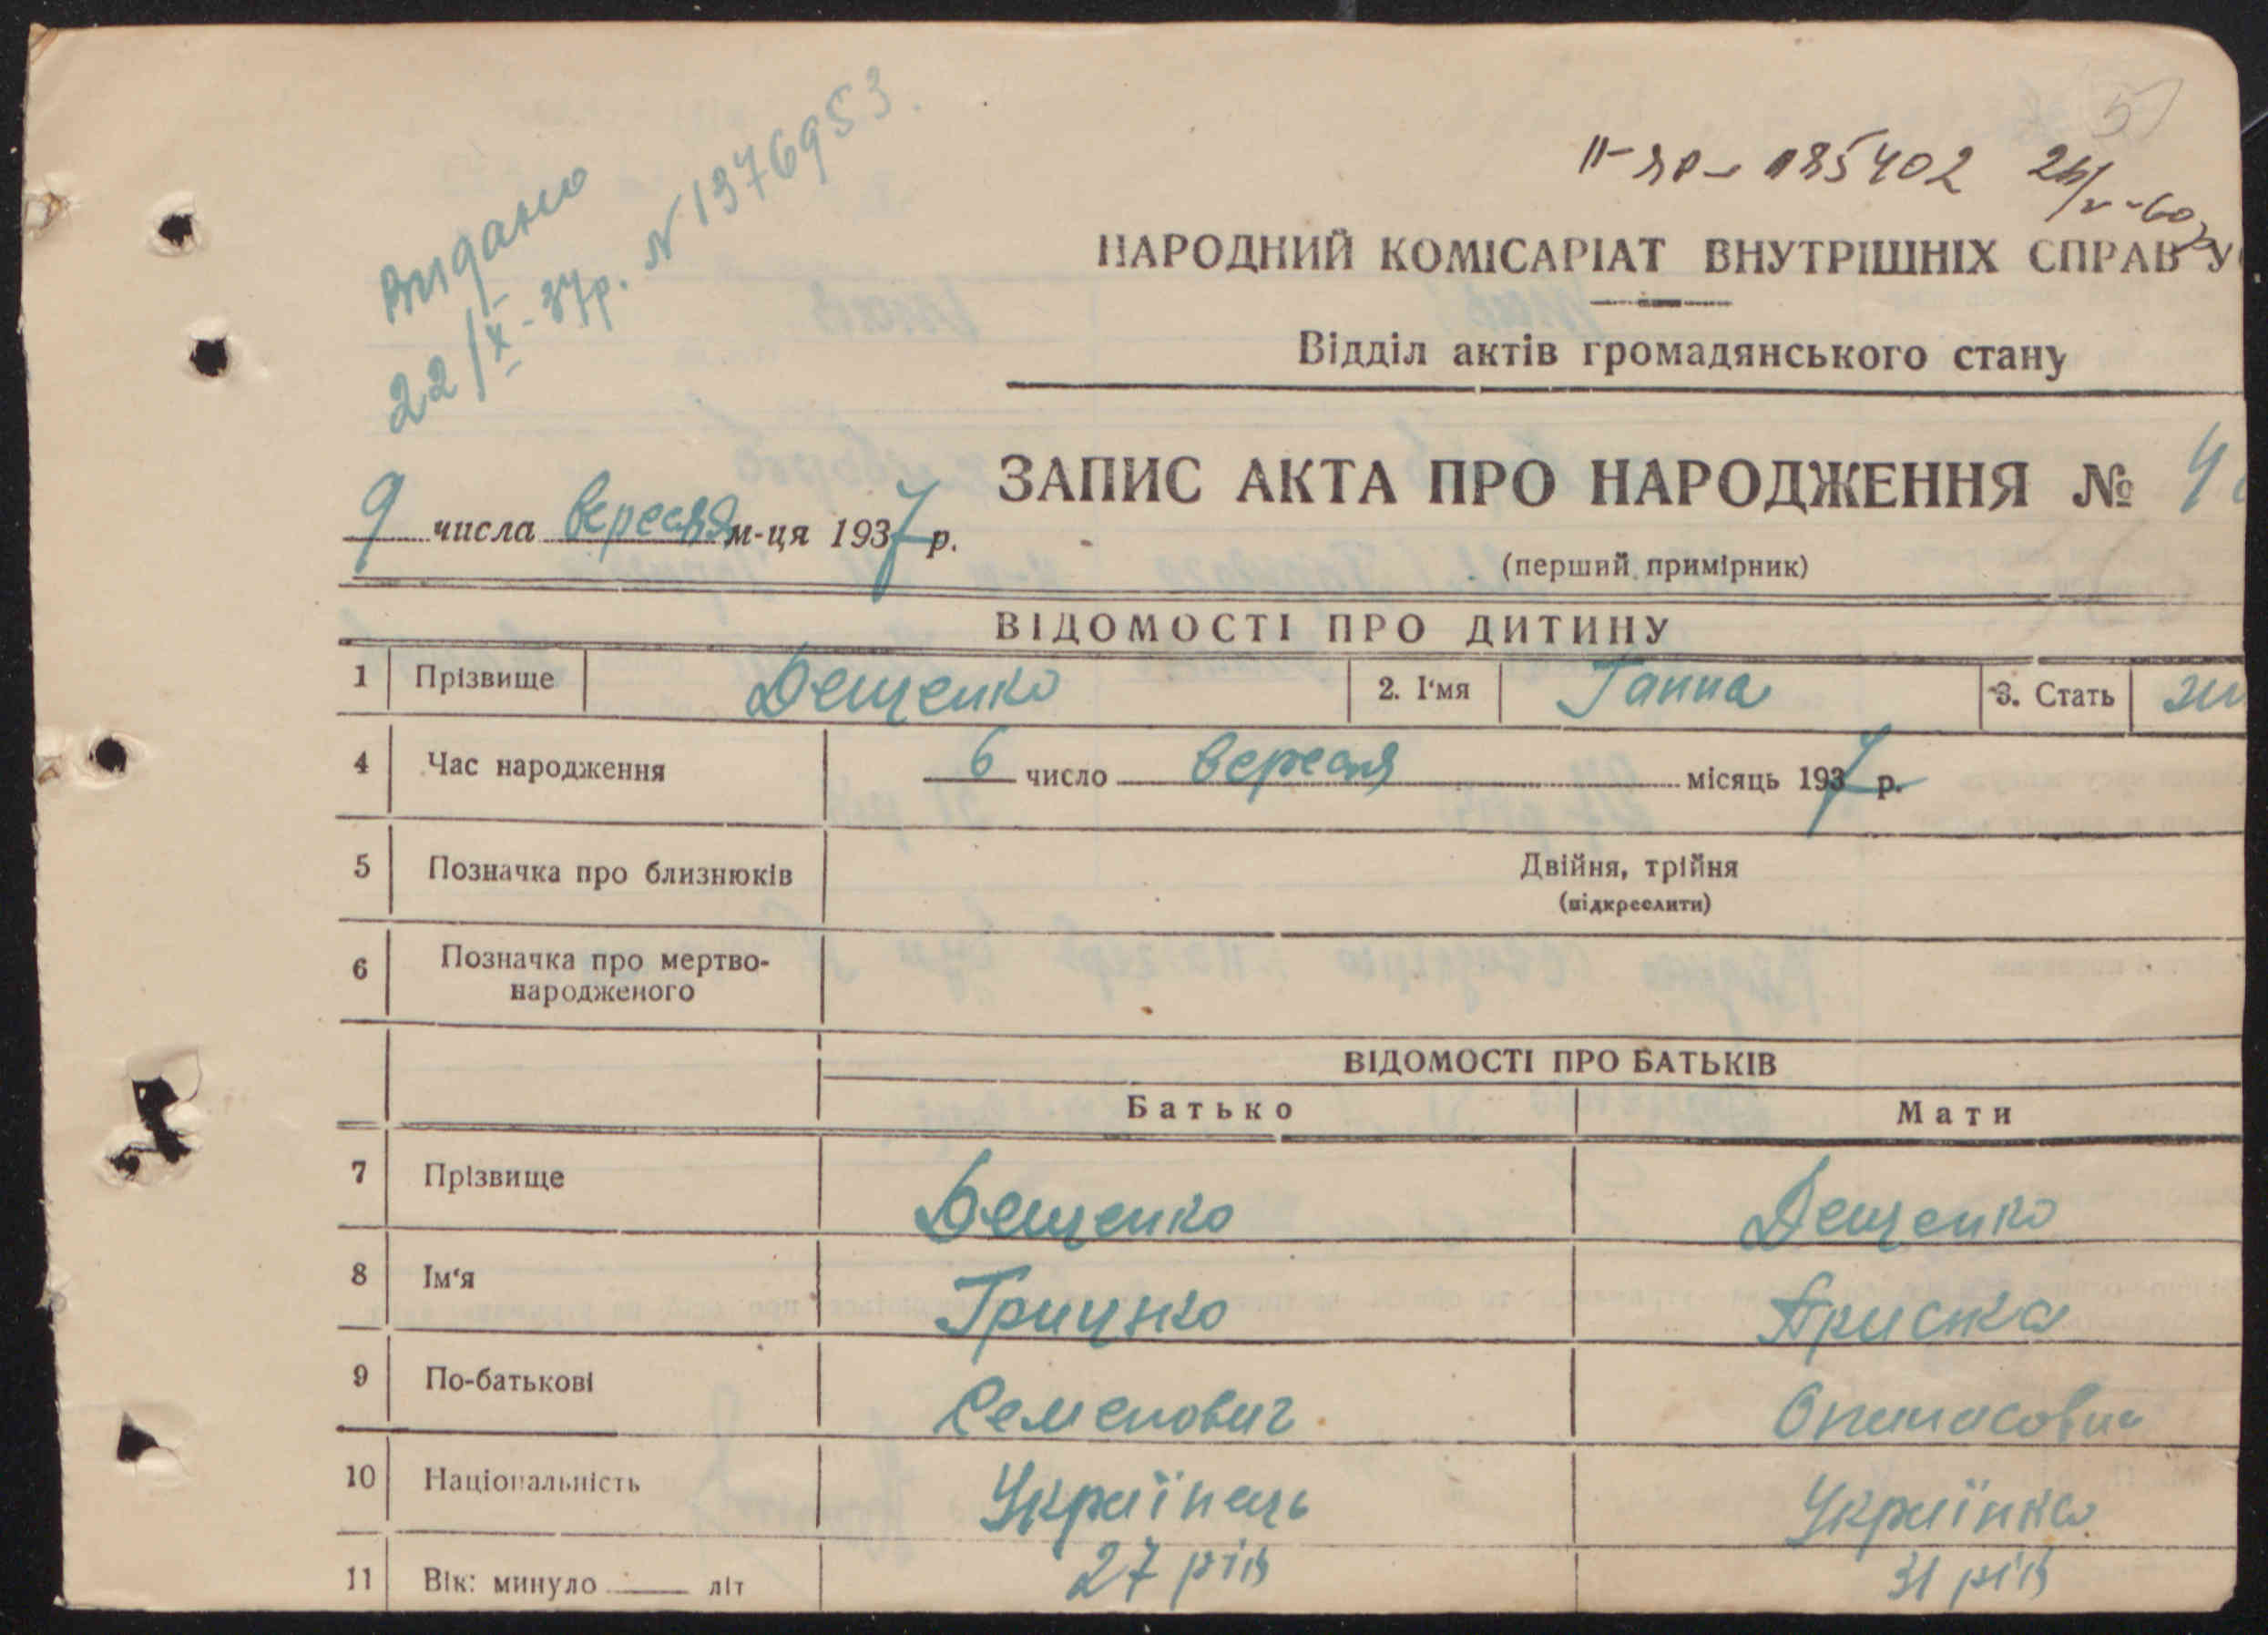 5
ІІ-ЯР- 085402
Видано
22/X-37р. N 1376953.
НАРОДНИЙ КОМІСАРІАТ ВНУТРІШНІХ СПРАВ У
Відділ актів громадянського стану
ЗАПИС АКТА ПРО НАРОДЖЕННЯ №
9 числа вересня м-ця 1937 р.
(перший примірник)
ВІДОМОСТІ ПРО ДИТИНУ
1 Прізвище Дещенко 2. І'мя Ганна 3. Стать
4 Час народження 6 число вересня місяць 1937 р.
5 Позначка про близнюків Двійня, трійня
(підкреслити)
6 Позначка про мертво-
народженого
ВІДОМОСТІ ПРО БАТЬКІВ
Батько Мати
7 Прізвище Дещенко Дещенко
8 Ім'я Грицько Приська
9 По-батькові Семенович
10 Національність Українець Українка
11 Вік: минуло ____ літ 27 рів 31 рів